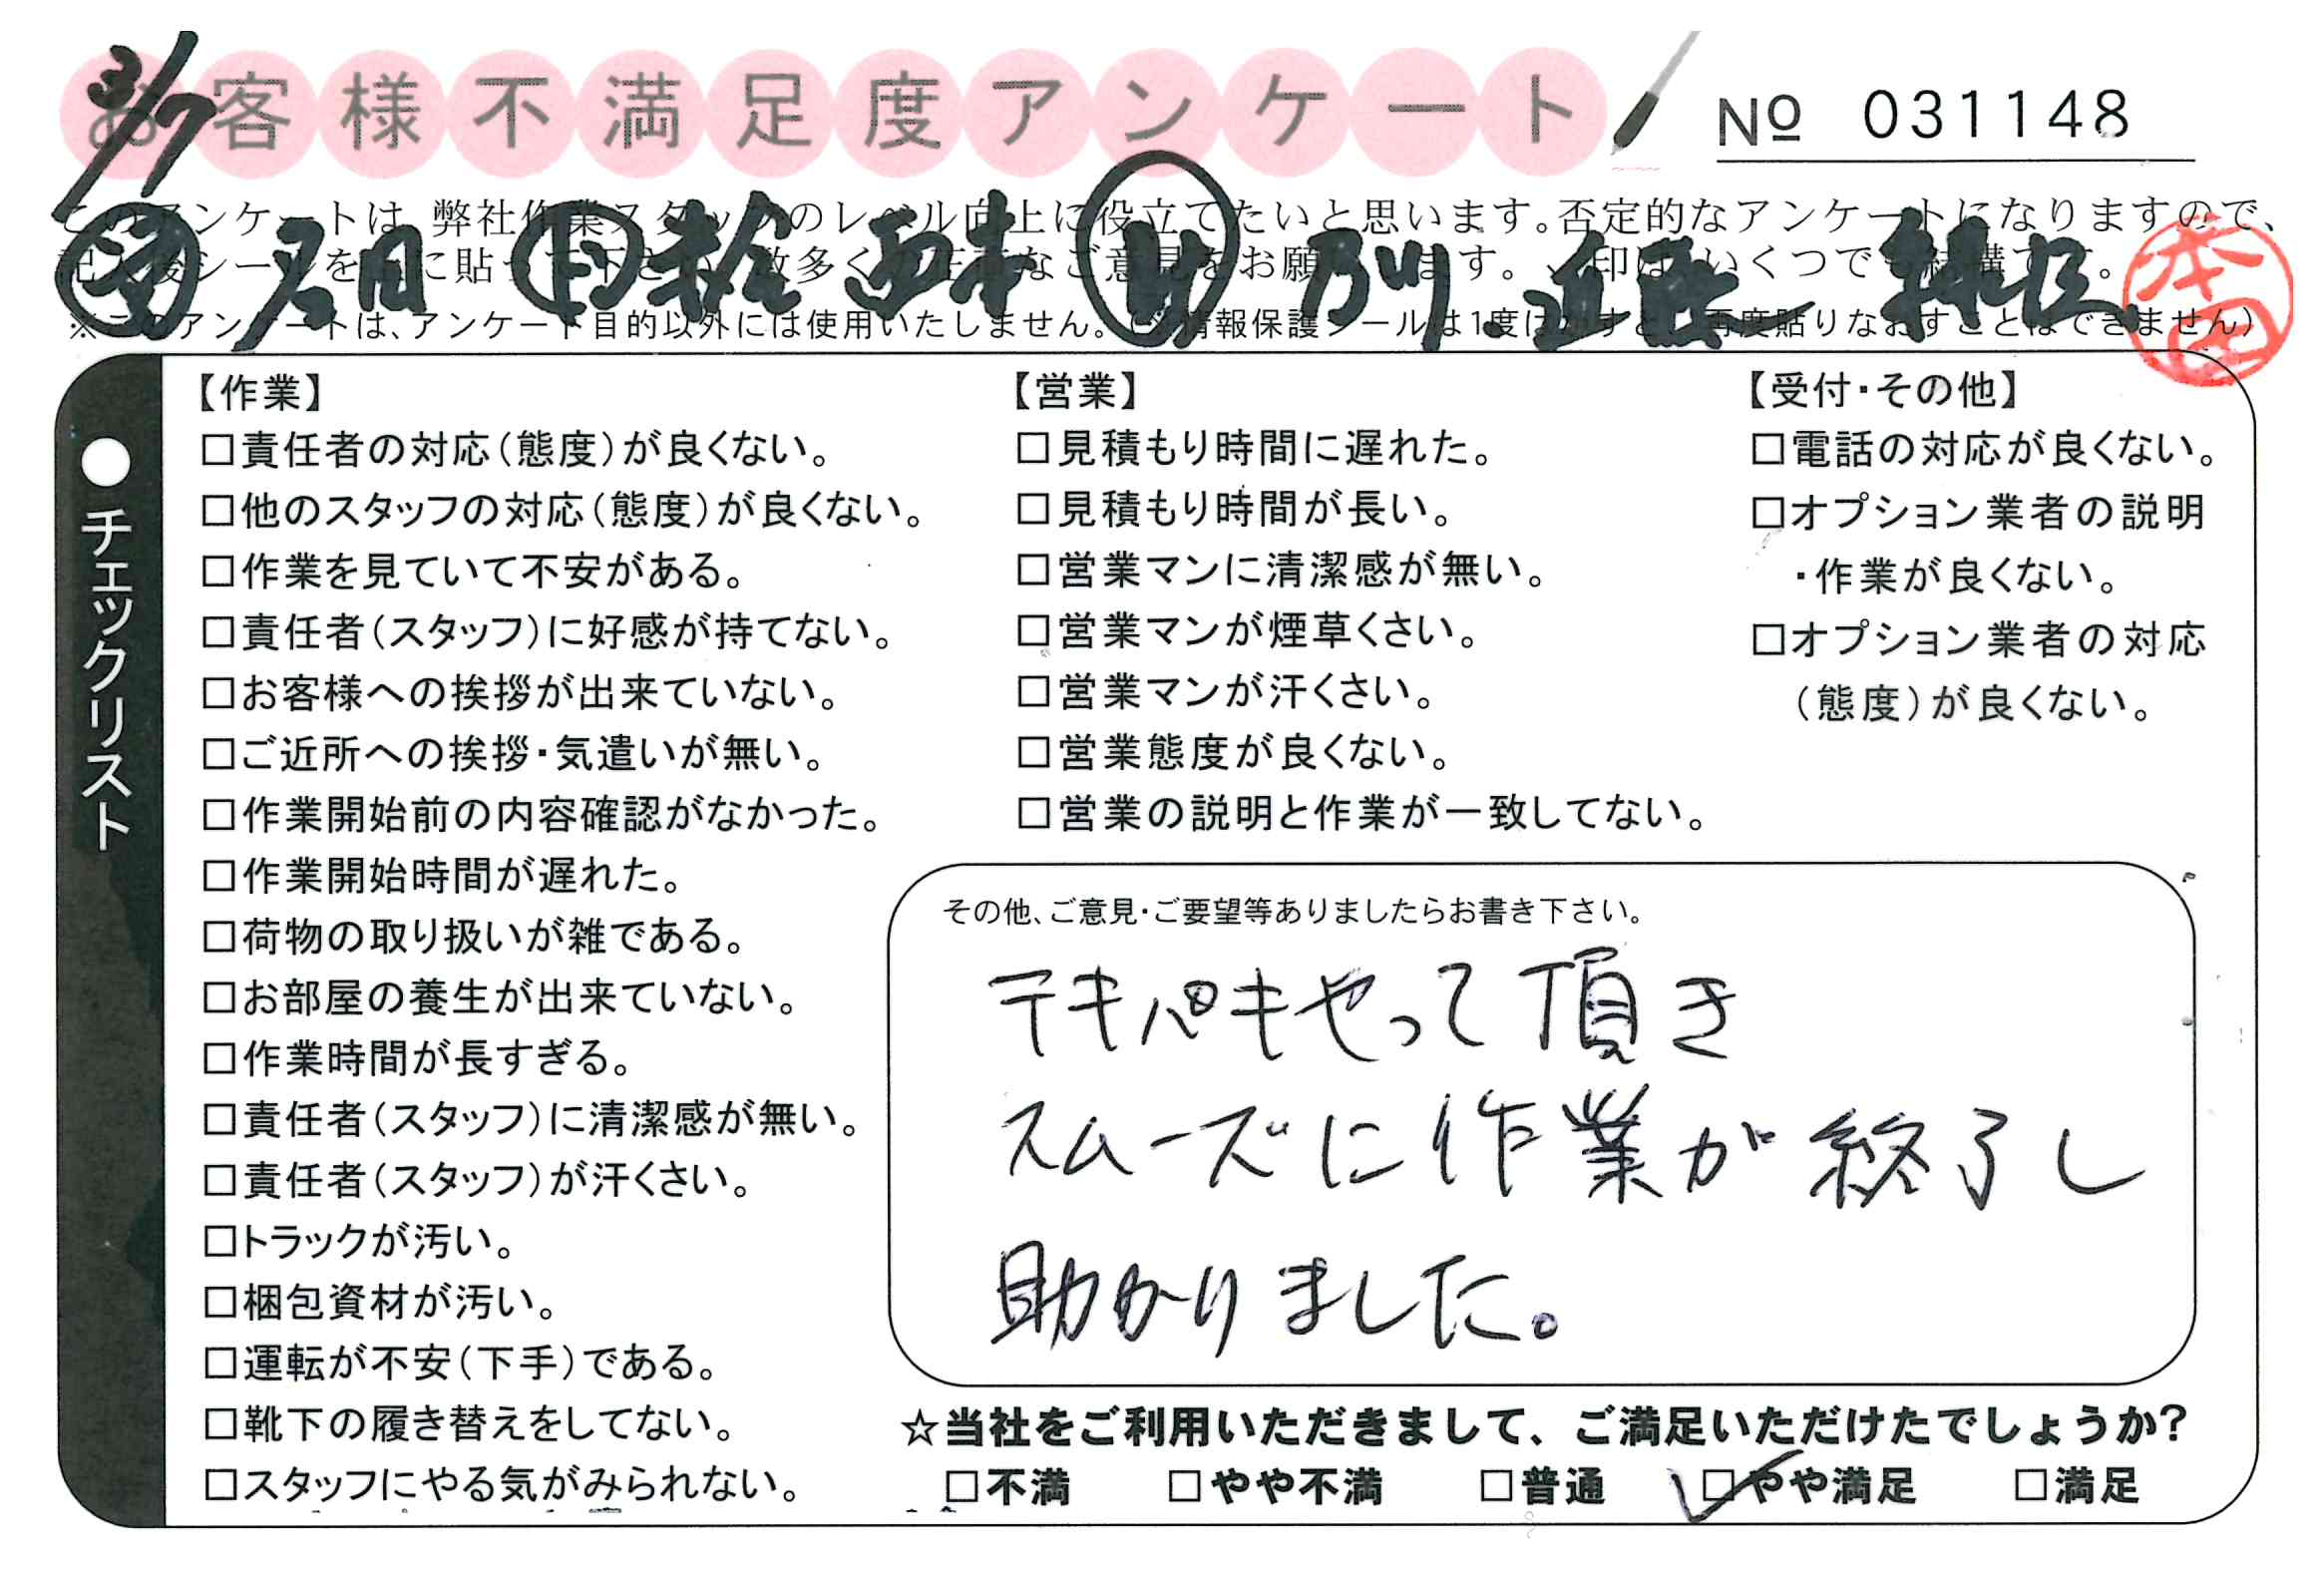 3/7
お客様不満足度アンケート
Nº 031148
このアンケートは、弊社作業スタッフのレベル向上に役立てたいと思います。否定的なアンケートになりますので、
本田
【作業】
□責任者の対応(態度)が良くない。
□他のスタッフの対応(態度)が良くない。
□作業を見ていて不安がある。
□責任者(スタッフ)に好感が持てない。
□お客様への挨拶が出来ていない。
□ご近所への挨拶・気遣いが無い。
□作業開始前の内容確認がなかった。
□作業開始時間が遅れた。
□荷物の取り扱いが雑である。
□お部屋の養生が出来ていない。
□作業時間が長すぎる。
□責任者(スタッフ)に清潔感が無い。
□責任者(スタッフ)が汗くさい。
□トラックが汚い。
□梱包資材が汚い。
□運転が不安(下手)である。
□靴下の履き替えをしてない。
□スタッフにやる気がみられない。
●チェックリスト
【営業】
□見積もり時間に遅れた。
□見積もり時間が長い。
□営業マンに清潔感が無い。
□営業マンが煙草くさい。
□営業マンが汗くさい。
□営業態度が良くない。
□営業の説明と作業が一致してない。
【受付・その他】
□電話の対応が良くない。
□オプション業者の説明
・作業が良くない。
□オプション業者の対応
(態度)が良くない。
その他、ご意見・ご要望等ありましたらお書き下さい。
テキパキやって頂き
スムーズに作業が終了し
助かりました。
☆当社をご利用いただきまして、ご満足いただけたでしょうか?
□不満 □やや不満 □普通 ☑やや満足 □満足